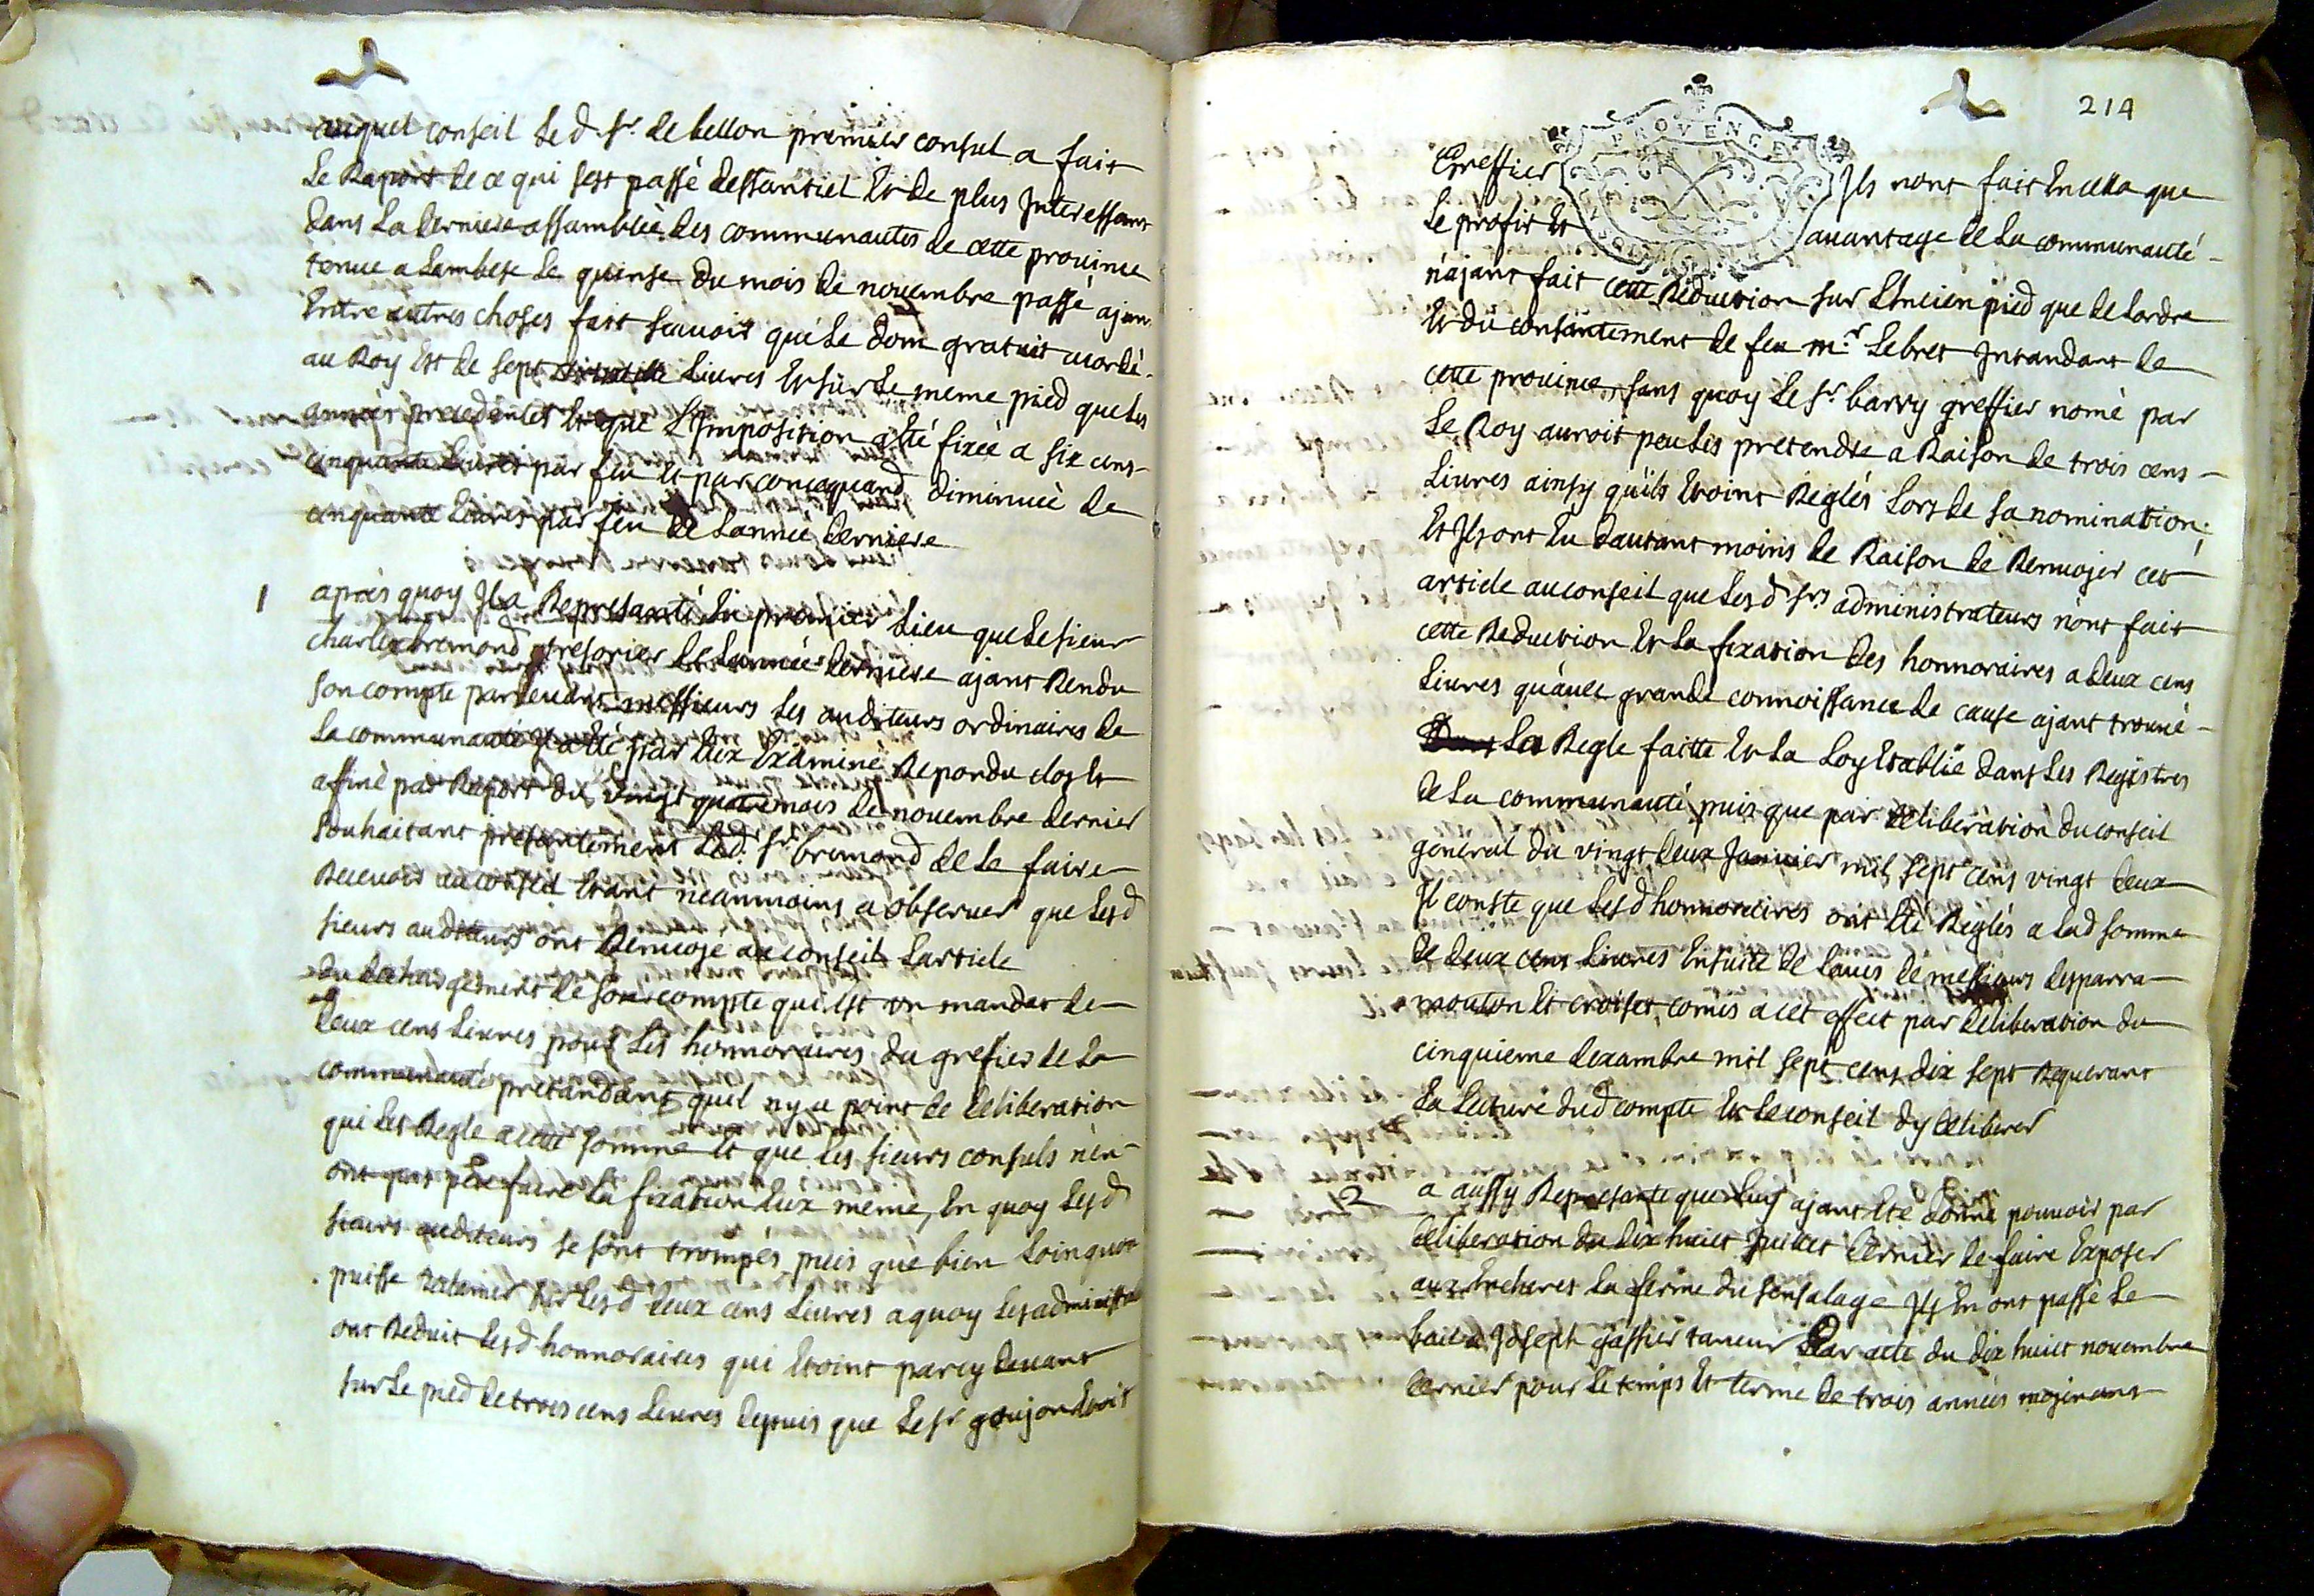 auquel conseil led. sr. de bellon premier consul a fait
Le Raport de ce qui sest passé dessantiel Et de plus Interessant
dans La derniere assamblée des communautés de cette province
tenue a Lambesc Le quinse du mois de novembre passé ajan
Entre autres choses fait scavoir que Le dom gratuit acordé
au Roy Est de sept livres Et sur Le meme pied que Les
années precedentes Et que L'Imposition a Eté fixée a six cens
cinquante livres par feu Et par concequand diminuée de
cinquante livres par feu de L'année derniere
1 aprés quoy Il a Represanté En premier Lieu que Le sieur
charles bremond tresorier de L'année derniere ajant Rendu
son compte pardeuant messieurs Les auditeurs ordinaires de
La communauté Il a Eté par Eux Examiné Repondu clos Et
affiné par Raport du vingt quatre mois de novembre dernier
souhaitant presantement Led. sr. bremond de Le faire
Recevoir au conseil Etant neanmoins a observer que Lesd
sieurs auditeurs ont Renvoyé au conseil L'article
du dechargement de son compte qui Est un mandat de
deux cens Livres pour Les honnoraires du grefier de La
communauté pretandant quil ny a point de deliberation
qui Les Regle a cette somme Et que Les sieurs consuls n'en
ont pas peu faire La fixation Eux meme, En quoy Lesd
sieurs auditeurs se sont trompés puis que bien Loin quon
puisse Reclamer sur Lesd deux cens Livres a quoy Les administra
ont Reduit Lesd honnoraires qui Etoint par cy devant
sur Le pied de trois cens Livres depuis que Le sr goujon Etoit
214
PROVENCE
Greffier Ils nont fait En cella que
Le profit Et avantage de La communauté
n'ajant fait cette Reduction sur L'Encien pied que de Lordre
Et du consantement de feu mr. Lebret Intandant de
cette province, sans quoy Le sr barry greffier nomé par
Le Roy auroit peu Les pretendre a Raison de trois cens
Livres ainsy quils Etoint Reglés Lors de sa nomination.
Et Ils ont Eu dautant moins de Raison de Renvojer cet
article au conseil que Lesd srs administrateurs n'ont fait
cette Reduction Et La fixation des honnoraires a deux cens
Livres qu'avec grande connoissance de cause ajant trouvé
La Regle faitte Et La Loy Etablie dans Les Registres
de La communauté puis que par deliberation du conseil
general du vingt deux Janvier mil sept cens vingt deux
Il conste que Lesd honnoraires ont Eté Reglés a Lad somme
de deux cens Livres Ensuite de L'avis de messieurs desparra
mouton Et croiset, comis a cet effect par deliberation du
cinquieme dexambre mil sept cens dix sept Requerant
La Lecture dud compte Et Le conseil dy deliberer
2 a aussy Represanté que Luy ajant Eté donné pouvoir par
deliberation du dix huict Juillet dernier de faire Exposer
aux Encheres La ferme du sensalage Ils En ont passé Le
bail a Joseph gassier taneur Par acte du dix huict novembre
dernier pour Le temps Et terme de trois années mojenans